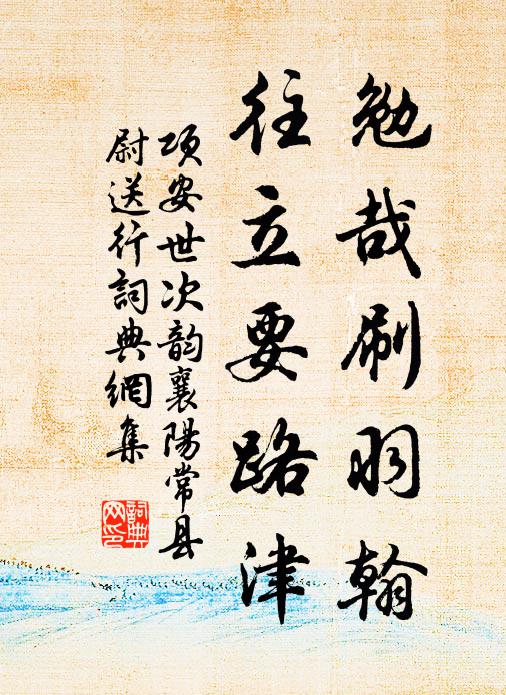 勉哉刷羽翰
往立要路津
项安世次韵襄陽常县
尉送行詞典網集
詞典网印